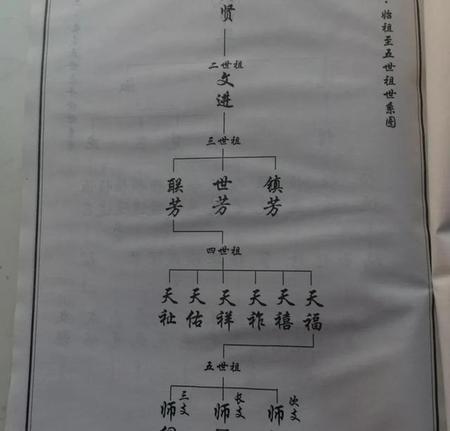 始祖至五世祖世系图
贤
二世祖
文进
三世祖
联芳 世芳 镇芳
四世祖
天祉 天佑 天祥 天祚 天禧 天福
五世祖
三支 长支 次支
师 师 师